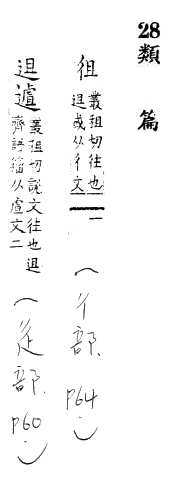 28類 篇
徂 叢租切往也
𨑭或从彳文一
(彳部. P64.)
𨑭𨖆 叢租切說文往也𨑭
齊語籀从虘文二
(辵部. P60.)